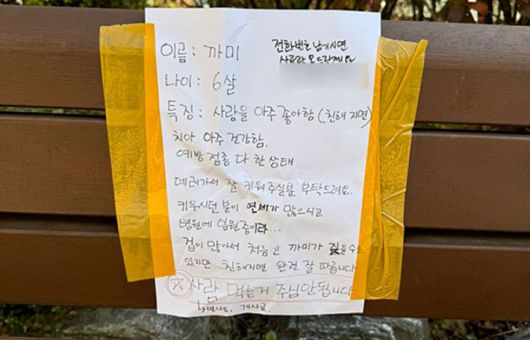 이름: 까미
전화번호 남기시면
사료랑 모 드릴게요
나이: 6살
특징: 사람을 아주 좋아함 (친해지면)
치아 아주 건강함.
예방접종 다 한 상태
데려가서 잘 키워주실분 부탁드려요.
키우시던 분이 연세가 많으시고
병원에 입원중이라...
겁이 많아서 처음엔 까미가 짖을수는
있지만 친해지면 완전 잘 따릅니다
※ 사람 먹는거 주심 안됩니다
개사료